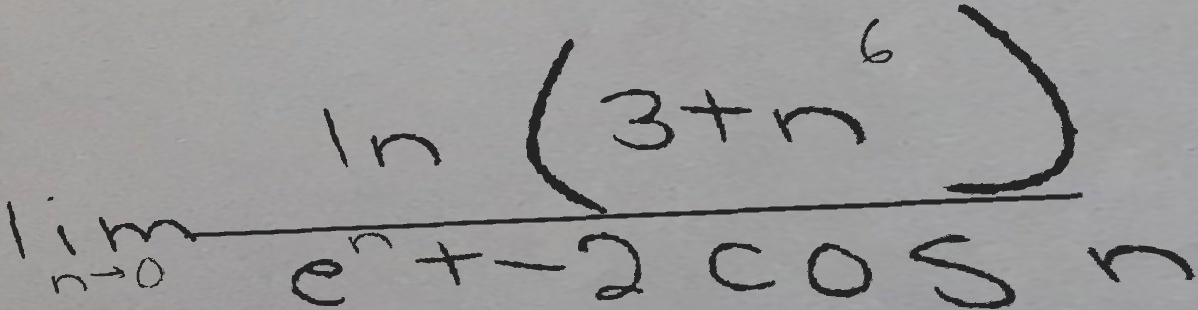 \lim_{n \to 0} \frac{\ln(3+n^6)}{e^n + -2 \cos n}